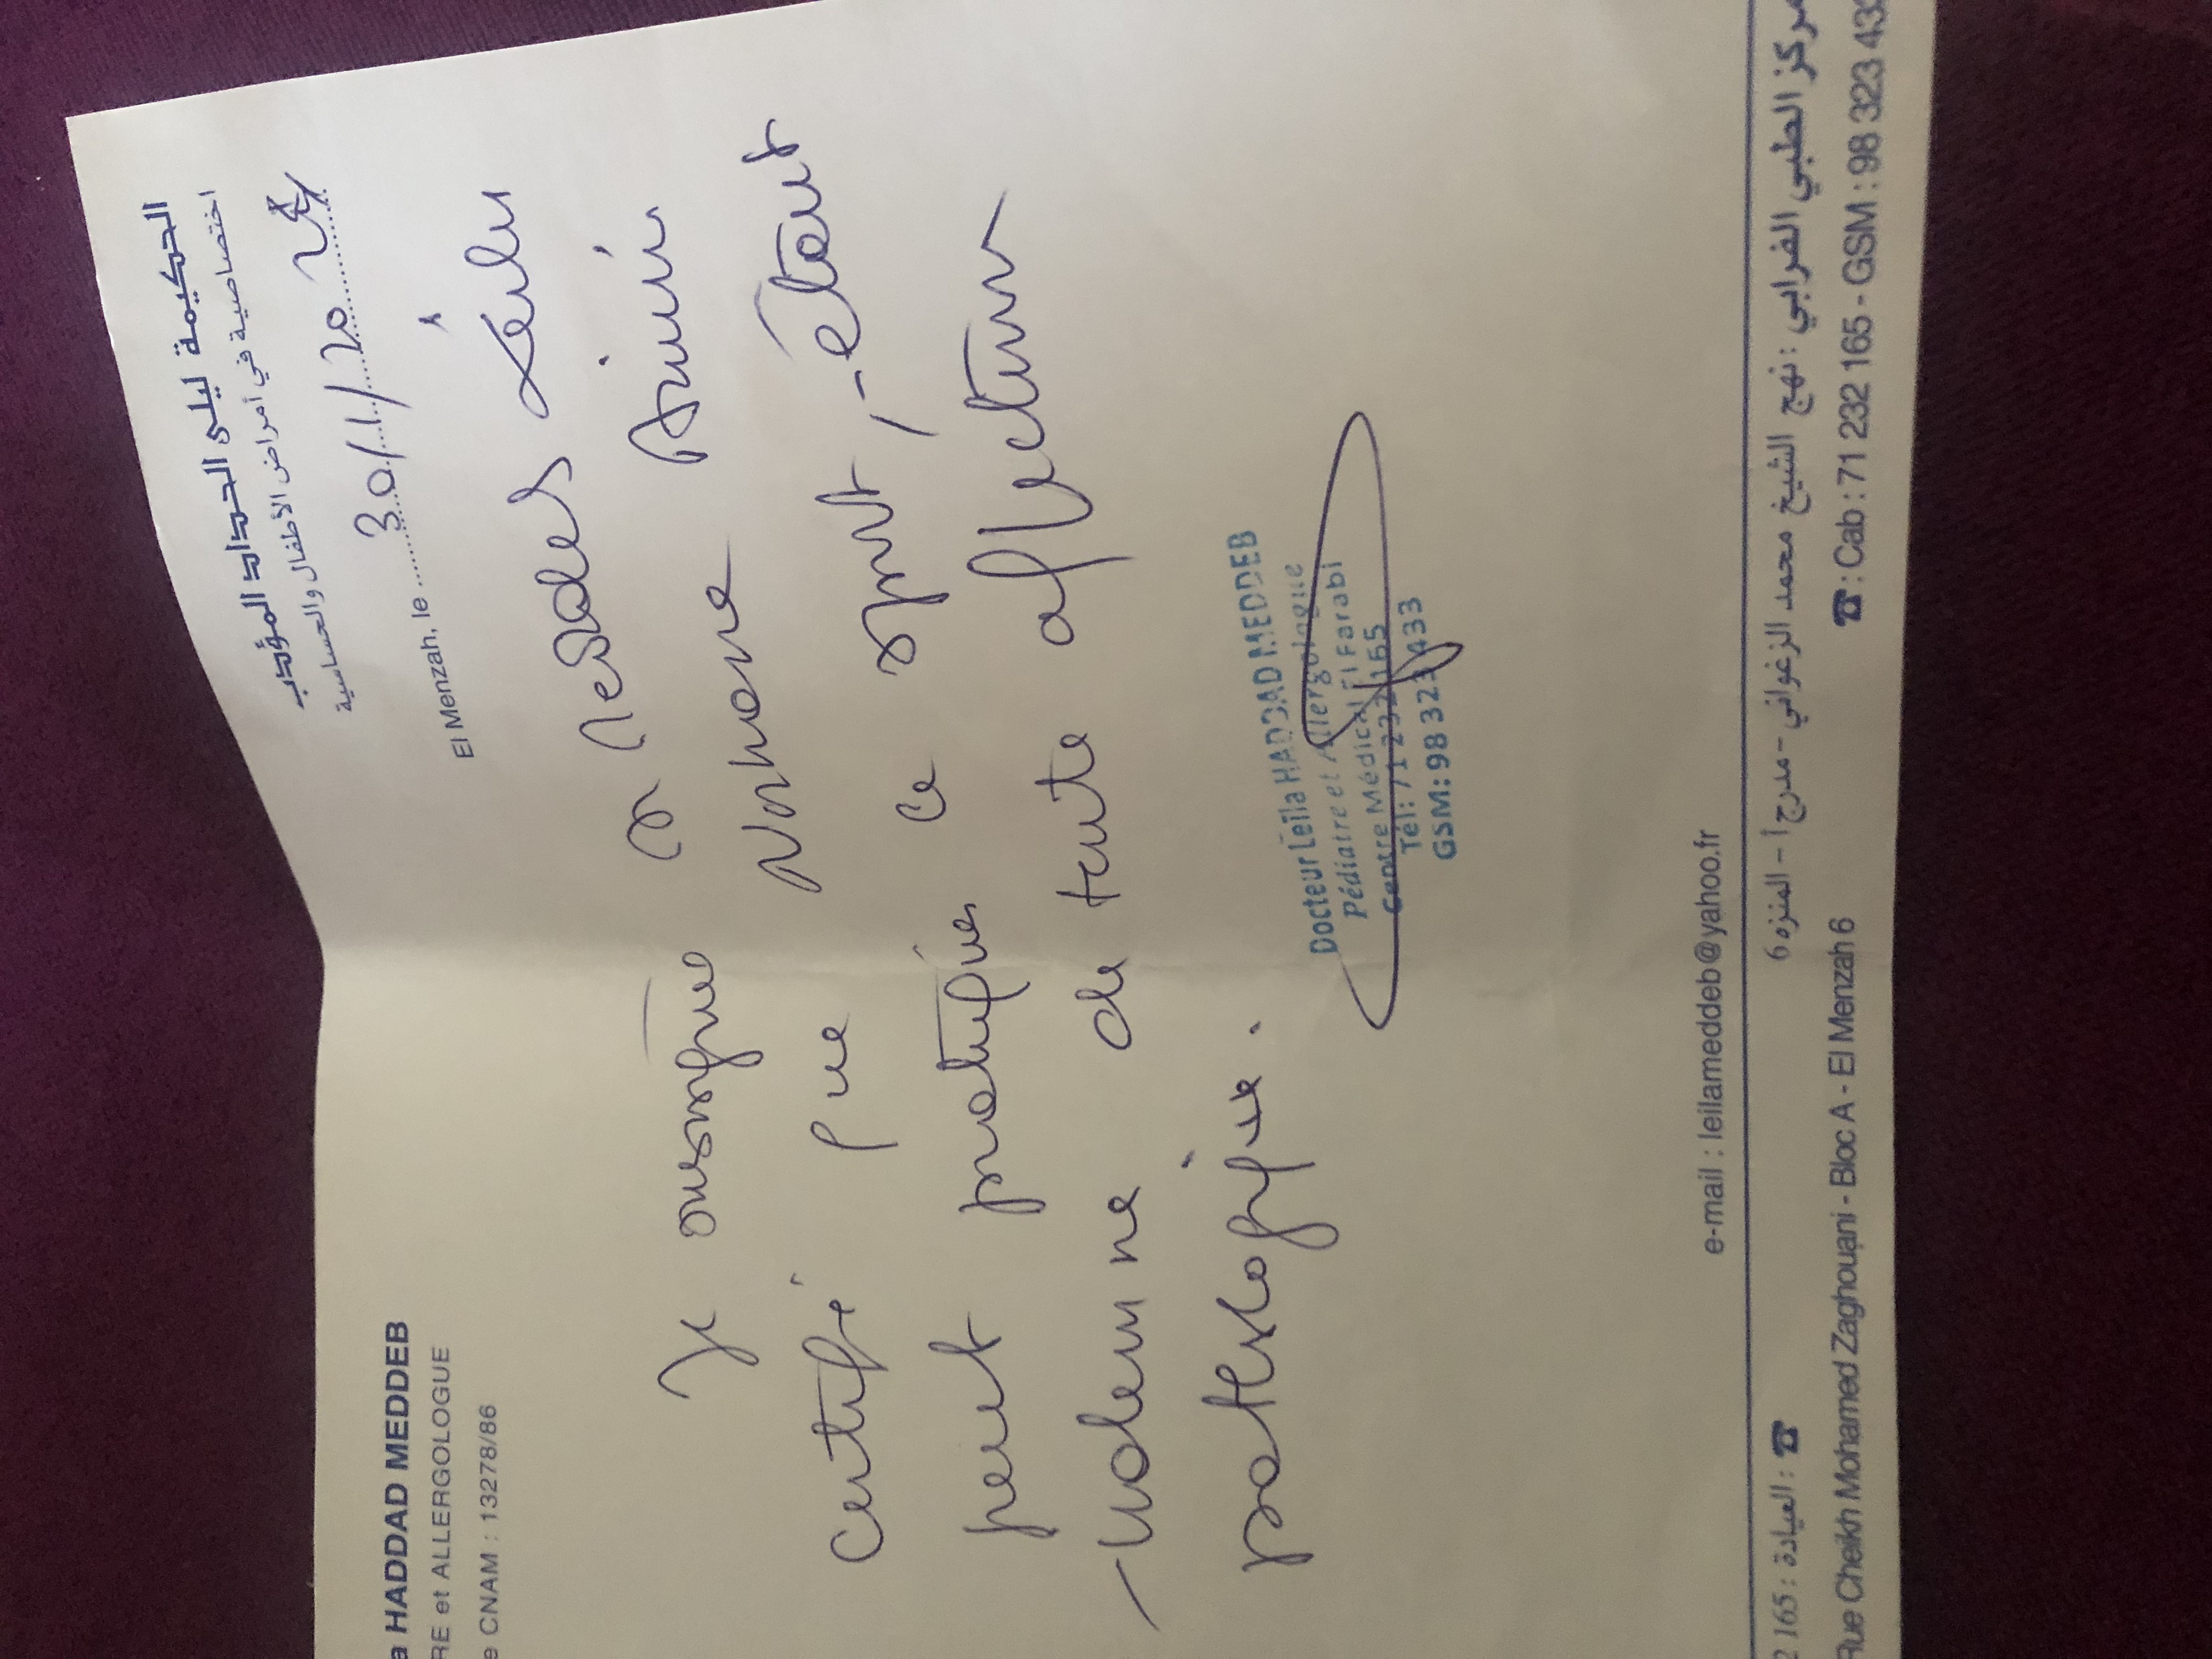 a HADDAD MEDDEB
RE et ALLERGOLOGUE
e CNAM : 13278/86
الحكيمة ليلى الحداد المؤدب
اختصاصية في أمراض الأطفال والحساسية
El Menzah, le 30/1/20
Je soussignée Leila
certifie que Norhane Amin
peut pratiquer ce sport, étant
indemne de toute affection
pathologique.
Docteur Leïla HADDAD MEDDEB
Pédiatre et Allergologue
Centre Médical El Farabi
Tél: 71 232 165
GSM: 98 323 433
e-mail : leilameddeb@yahoo.fr
مركز الطبي الفرابي : نهج الشيخ محمد الزغواني - مدرج أ - المنزه 6
العيادة : 2 165
Rue Cheikh Mohamed Zaghouani - Bloc A - El Menzah 6
☎ : Cab : 71 232 165 - GSM : 98 323 433